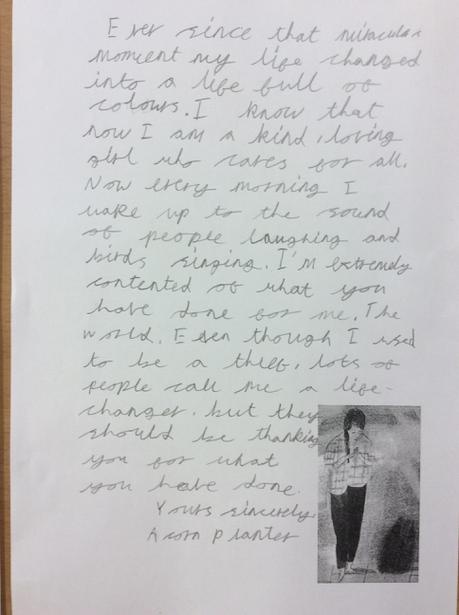 Ever since that miraculas
moment my life changed
into a life full of
colours. I know that
now I am a kind, loving
girl who cares for all.
Now every morning I
wake up to the sound
of people laughing and
birds singing. I'm extremely
contented of what you
have done for me. The
world. Even though I used
to be a thief, lots of
people call me a life-
changer. but they
should be thanking
you for what
you have done.
Yours sincerely
Acorn planter